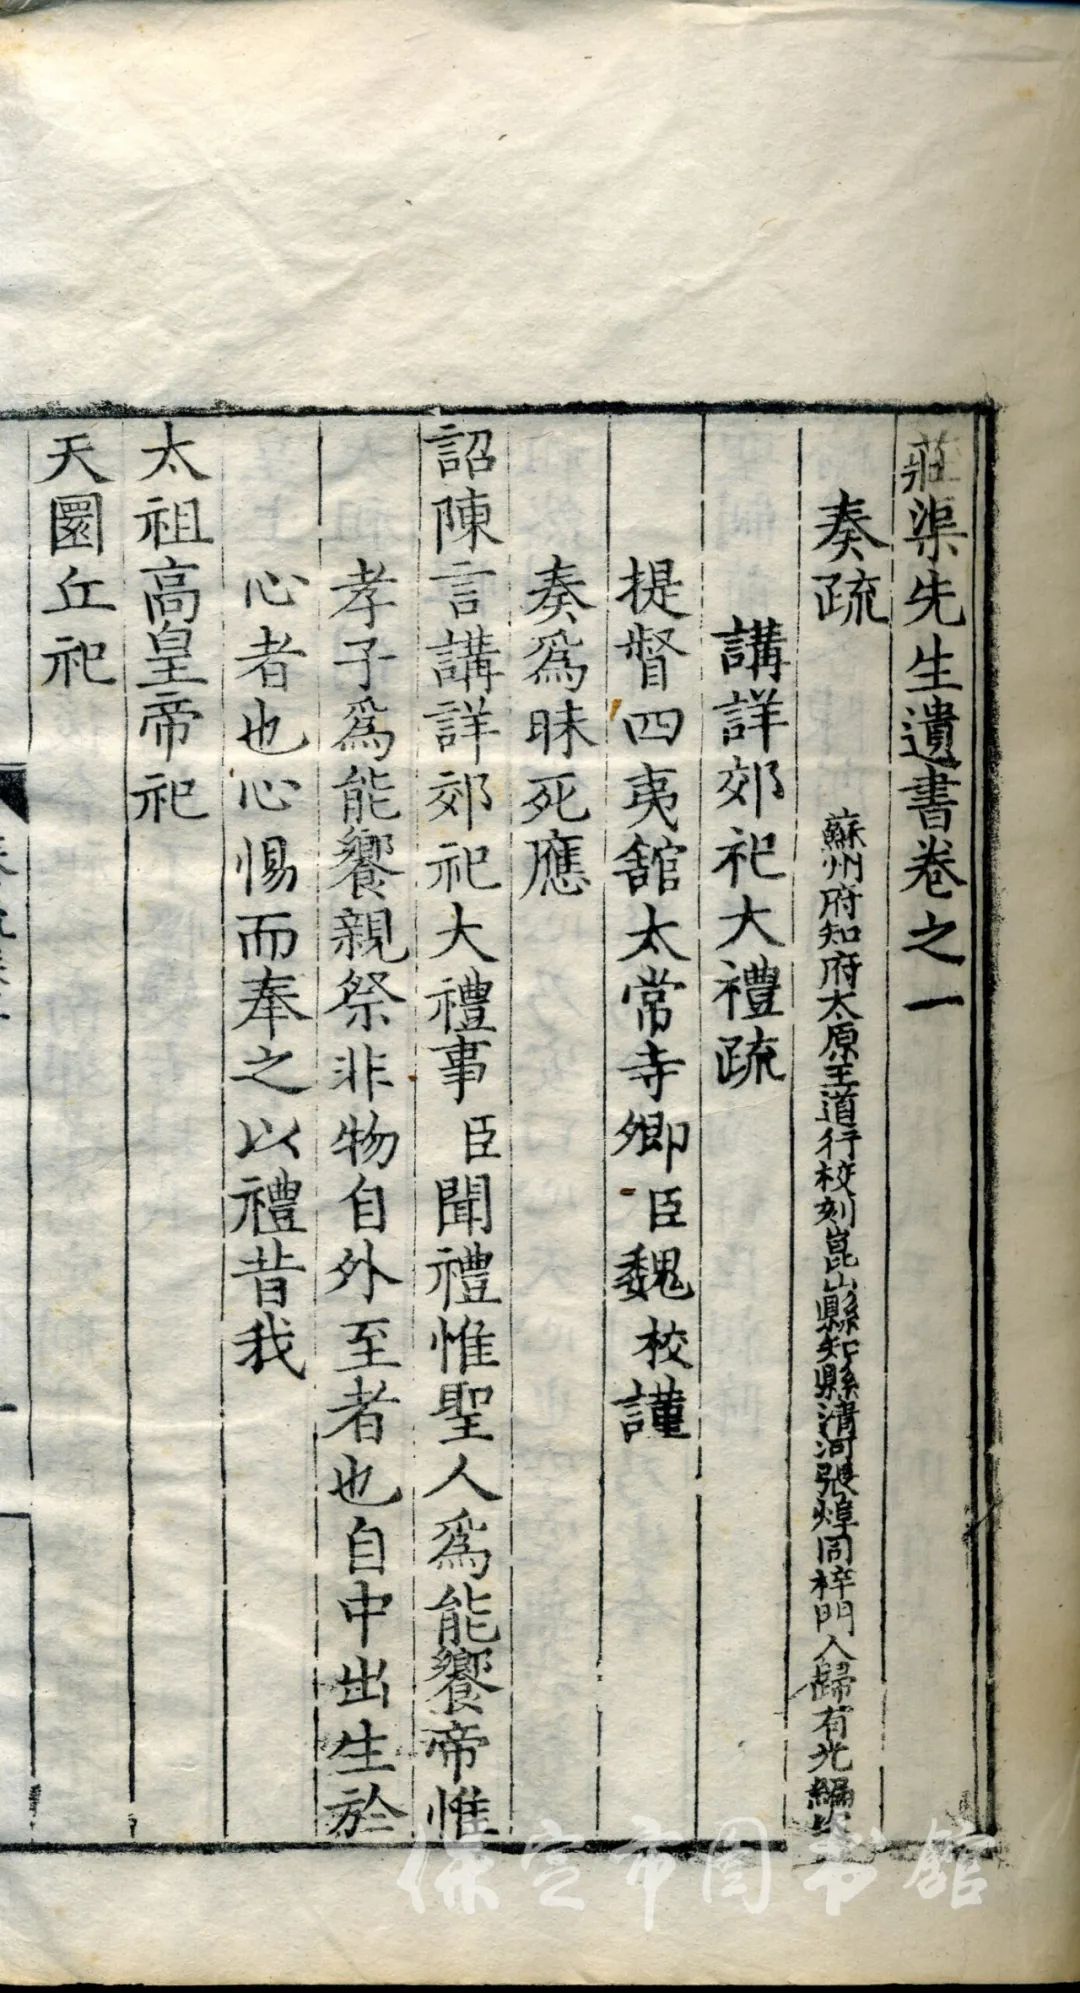 莊渠先生遺書卷之一
奏疏 蘇州府知府太原王道行校刻崑山縣知縣清河張焯同梓門人歸有光編次
講詳郊祀大禮疏
提督四夷舘太常寺卿臣魏校謹
奏爲昧死應
詔陳言講詳郊祀大禮事臣聞禮惟聖人爲能饗帝惟
孝子爲能饗親祭非物自外至者也自中出生於
心者也心惕而奉之以禮昔我
太祖高皇帝祀
天圜丘祀
保定市图书馆